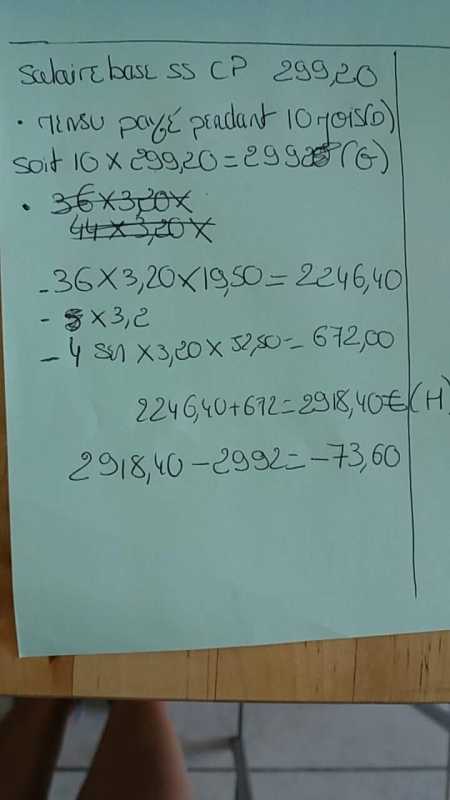 Salaire base ss CP 299,20
• Mensu payé pendant 10 mois(D)
soit 10 x 299,20 = 2992 (G)
• 36 x 3,20 x
44 x 3,20 x
- 36 x 3,20 x 19,50 = 2246,40
- 8 x 3,2
- 4 sem x 3,20 x 52,50 = 672,00
2246,40 + 672 = 2918,40 € (H)
2918,40 - 2992 = - 73,60